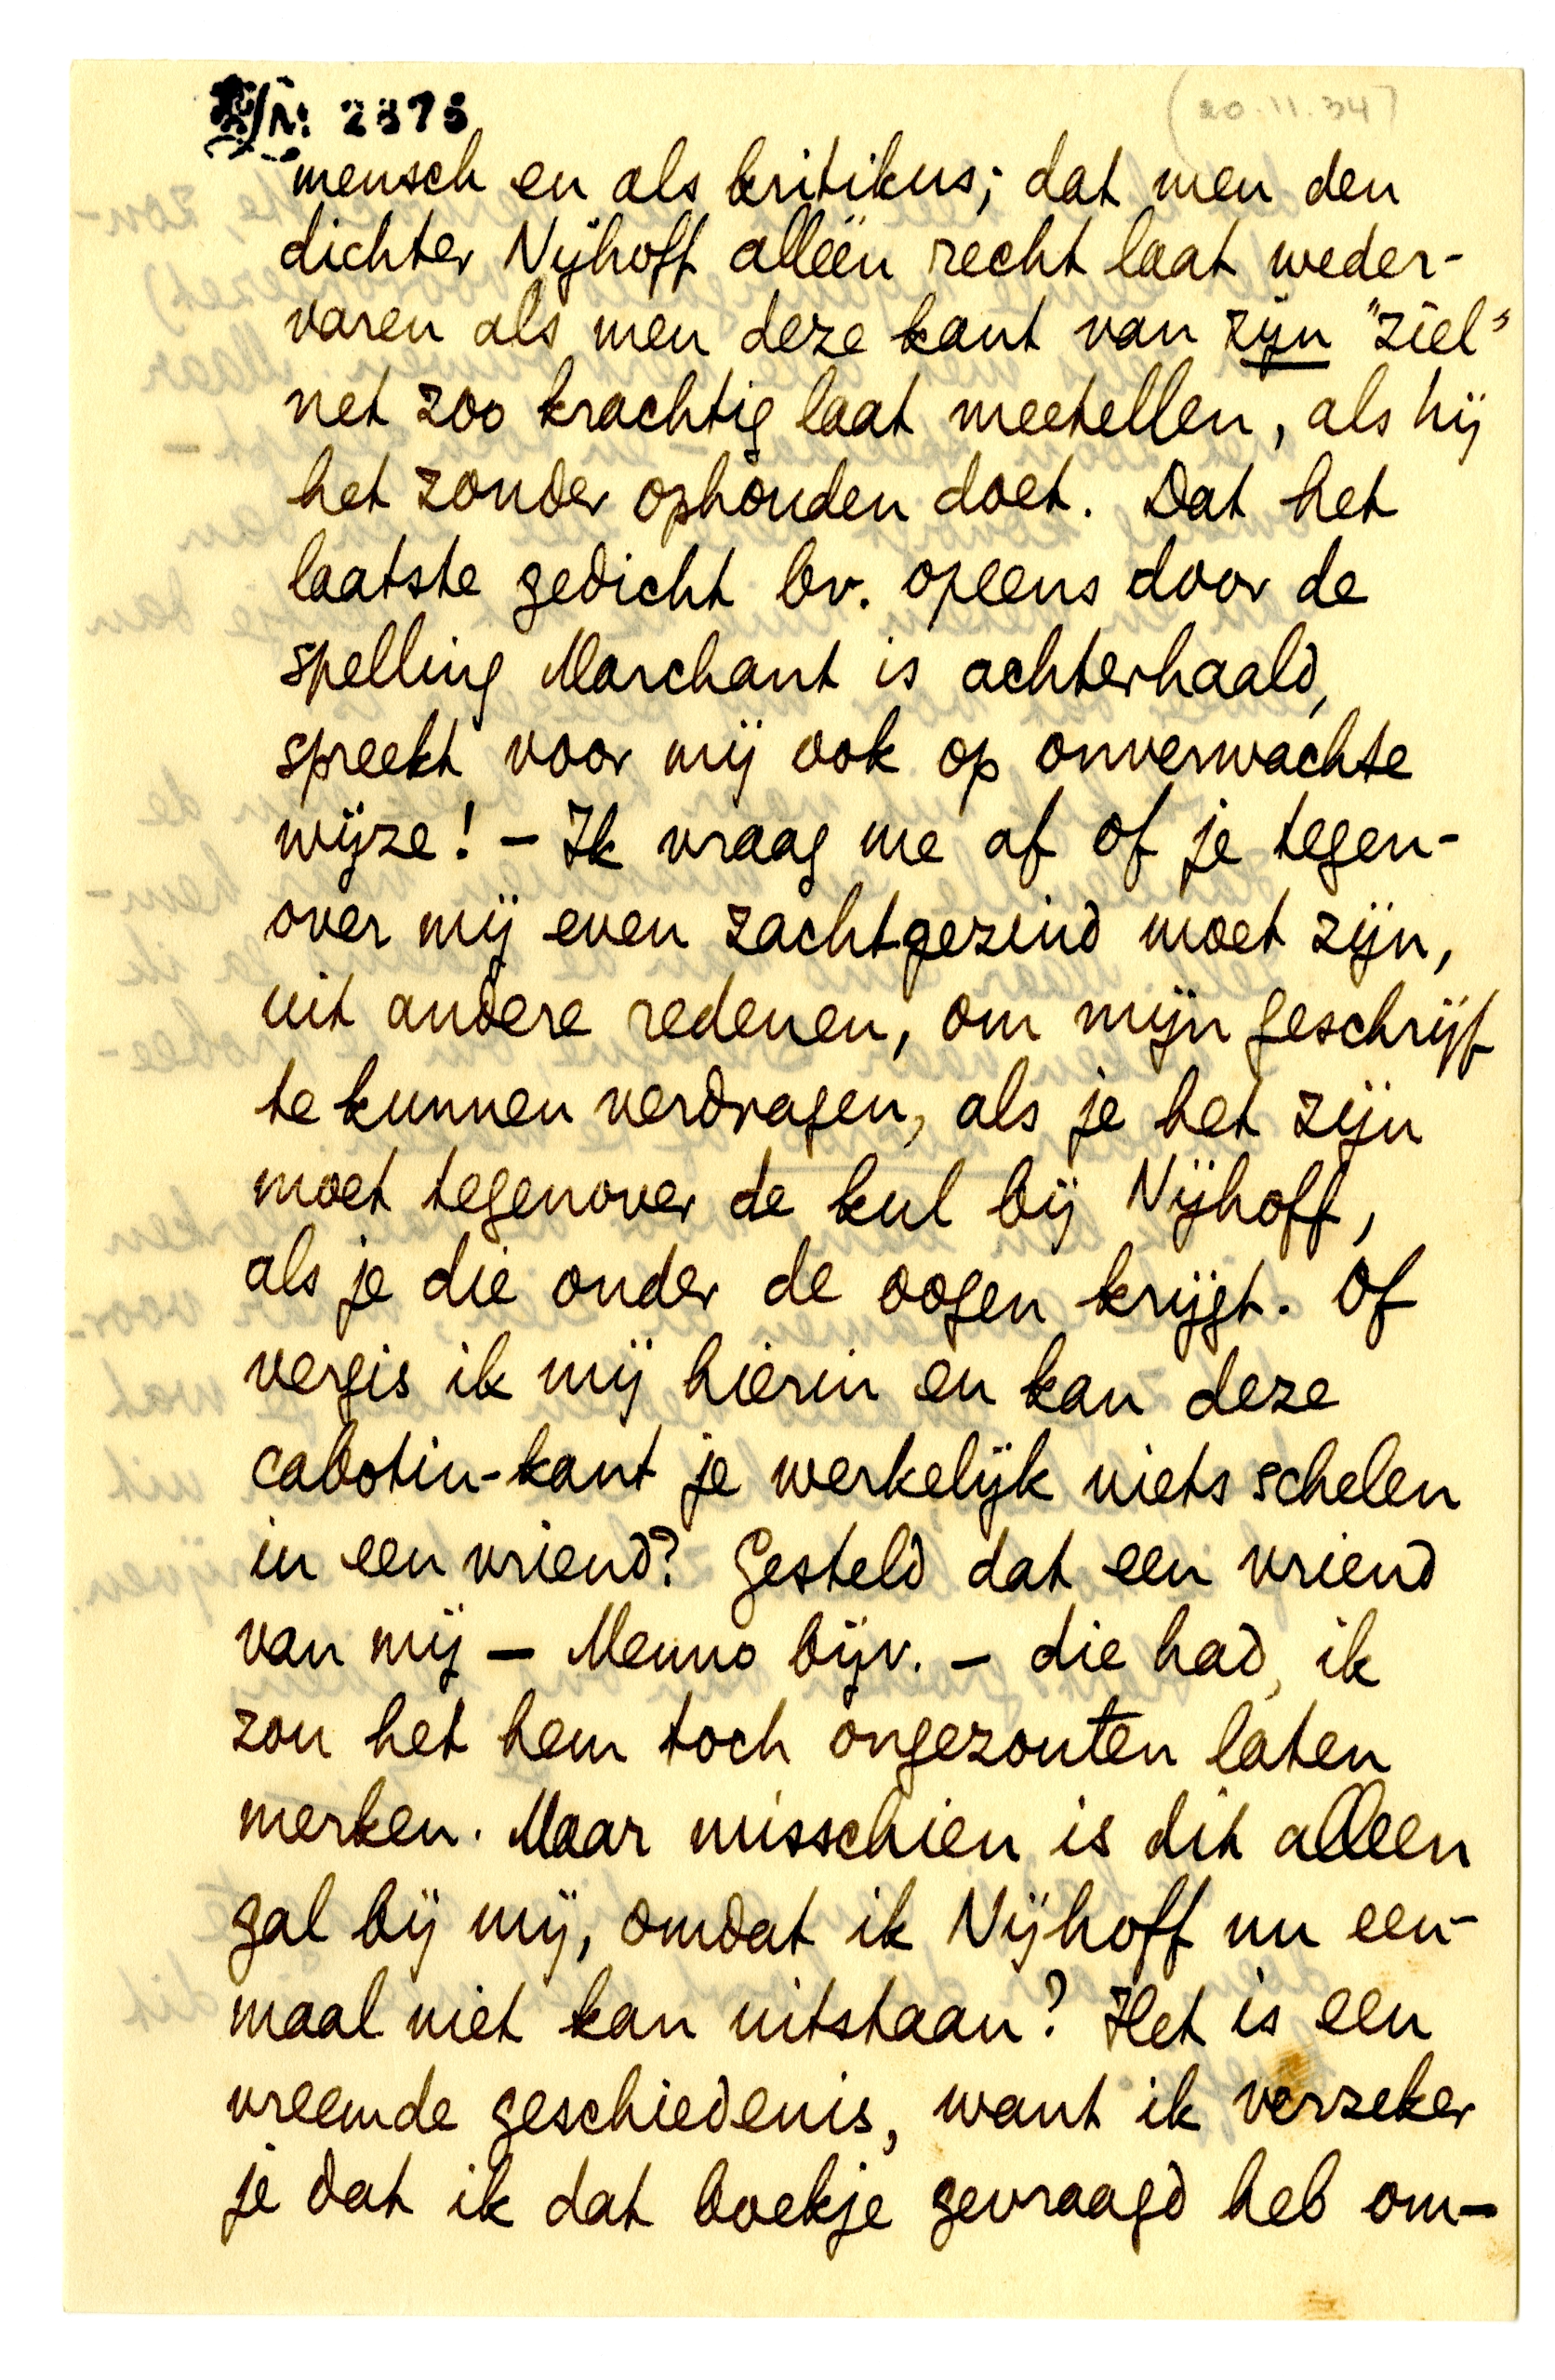 N: 2878
(20.11.34)
mensch en als kritikus; dat men den
dichter Nijhoff alléén recht laat weder-
varen als men deze kant van zijn "ziel"
net zoo krachtig laat meetellen, als hij
het zonder ophouden doet. Dat het
laatste gedicht bv. opeens door de
spelling Marchant is achterhaald,
spreekt voor mij ook op onverwachte
wijze! – Ik vraag me af of je tegen-
over mij even zachtgezind moet zijn,
uit andere redenen, om mijn geschrijf
te kunnen verdragen, als je het zijn
moet tegenover de kul bij Nijhoff,
als je die onder de oogen krijgt. Of
vergis ik mij hierin en kan deze
cabotin-kant je werkelijk niets schelen
in een vriend? Gesteld dat een vriend
van mij – Menno bijv. – die had, ik
zou het hem toch ongezouten laten
merken. Maar misschien is dit alleen
gal bij mij, omdat ik Nijhoff nu een-
maal niet kan uitstaan? Het is een
vreemde geschiedenis, want ik verzeker
je dat ik dat boekje gevraagd heb om-